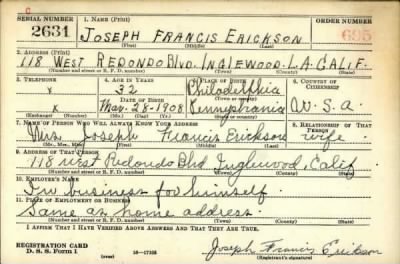 C
SERIAL NUMBER 1. NAME (Print) ORDER NUMBER
2631 JOSEPH FRANCIS ERICKSON 695
(First) (Middle) (Last)
2. ADDRESS (Print)
118 WEST REDONDO BLVD. INGLEWOOD. L.A. CALIF.
(Number and street or R. F. D. number) (Town) (County) (State)
3. TELEPHONE 4. AGE IN YEARS 5. PLACE OF BIRTH 6. COUNTRY OF CITIZENSHIP
x 32 Philadelphia
DATE OF BIRTH (Town or county)
x Mar. 28-1908 Pennsylvania U. S. A.
(Exchange) (Number) (Mo.) (Day) (Yr.) (State or country)
7. NAME OF PERSON WHO WILL ALWAYS KNOW YOUR ADDRESS 8. RELATIONSHIP OF THAT PERSON
Mrs. Joseph Francis Erickson wife
(Mr., Mrs., Miss) (First) (Middle) (Last)
9. ADDRESS OF THAT PERSON
118 West Redondo Blvd Inglewood, Calif
(Number and street or R. F. D. number) (Town) (County) (State)
10. EMPLOYER'S NAME
In business for himself.
11. PLACE OF EMPLOYMENT OR BUSINESS
Same as home address.
(Number and street or R. F. D. number) (Town) (County) (State)
I AFFIRM THAT I HAVE VERIFIED ABOVE ANSWERS AND THAT THEY ARE TRUE.
REGISTRATION CARD
D. S. S. Form 1 (over) 16-17105 Joseph Francis Erickson
(Registrant's signature)